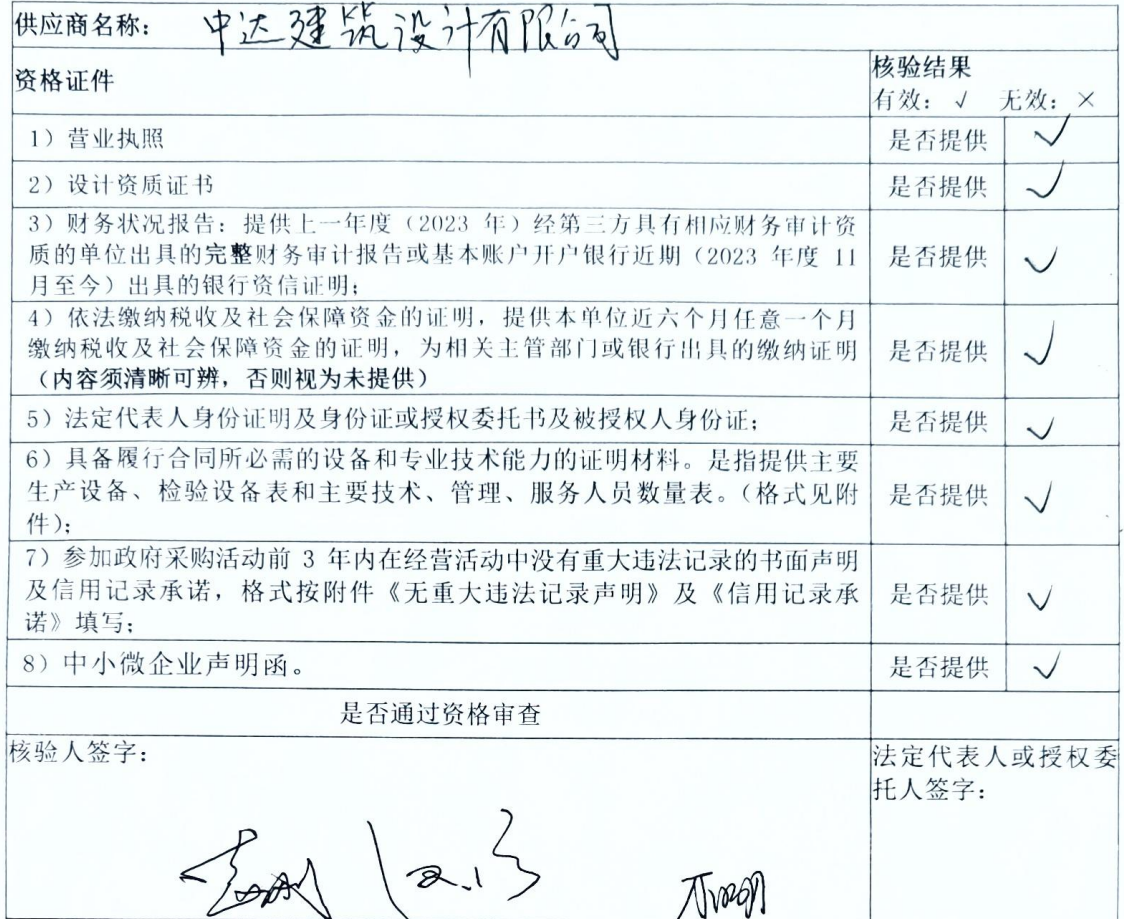 供应商名称： 中达建筑设计有限公司
资格证件
核验结果
有效：√ 无效：×
1）营业执照 是否提供 ✓
2）设计资质证书 是否提供 ✓
3）财务状况报告：提供上一年度（2023 年）经第三方具有相应财务审计资
质的单位出具的完整财务审计报告或基本账户开户银行近期（2023 年度 11 是否提供 ✓
月至今）出具的银行资信证明；
4）依法缴纳税收及社会保障资金的证明，提供本单位近六个月任意一个月
缴纳税收及社会保障资金的证明，为相关主管部门或银行出具的缴纳证明 是否提供 ✓
（内容须清晰可辨，否则视为未提供）
5）法定代表人身份证明及身份证或授权委托书及被授权人身份证； 是否提供 ✓
6）具备履行合同所必需的设备和专业技术能力的证明材料。是指提供主要
生产设备、检验设备表和主要技术、管理、服务人员数量表。（格式见附 是否提供 ✓
件）；
7）参加政府采购活动前 3 年内在经营活动中没有重大违法记录的书面声明
及信用记录承诺，格式按附件《无重大违法记录声明》及《信用记录承 是否提供 ✓
诺》填写；
8）中小微企业声明函。 是否提供 ✓
是否通过资格审查
核验人签字：
法定代表人或授权委
托人签字：